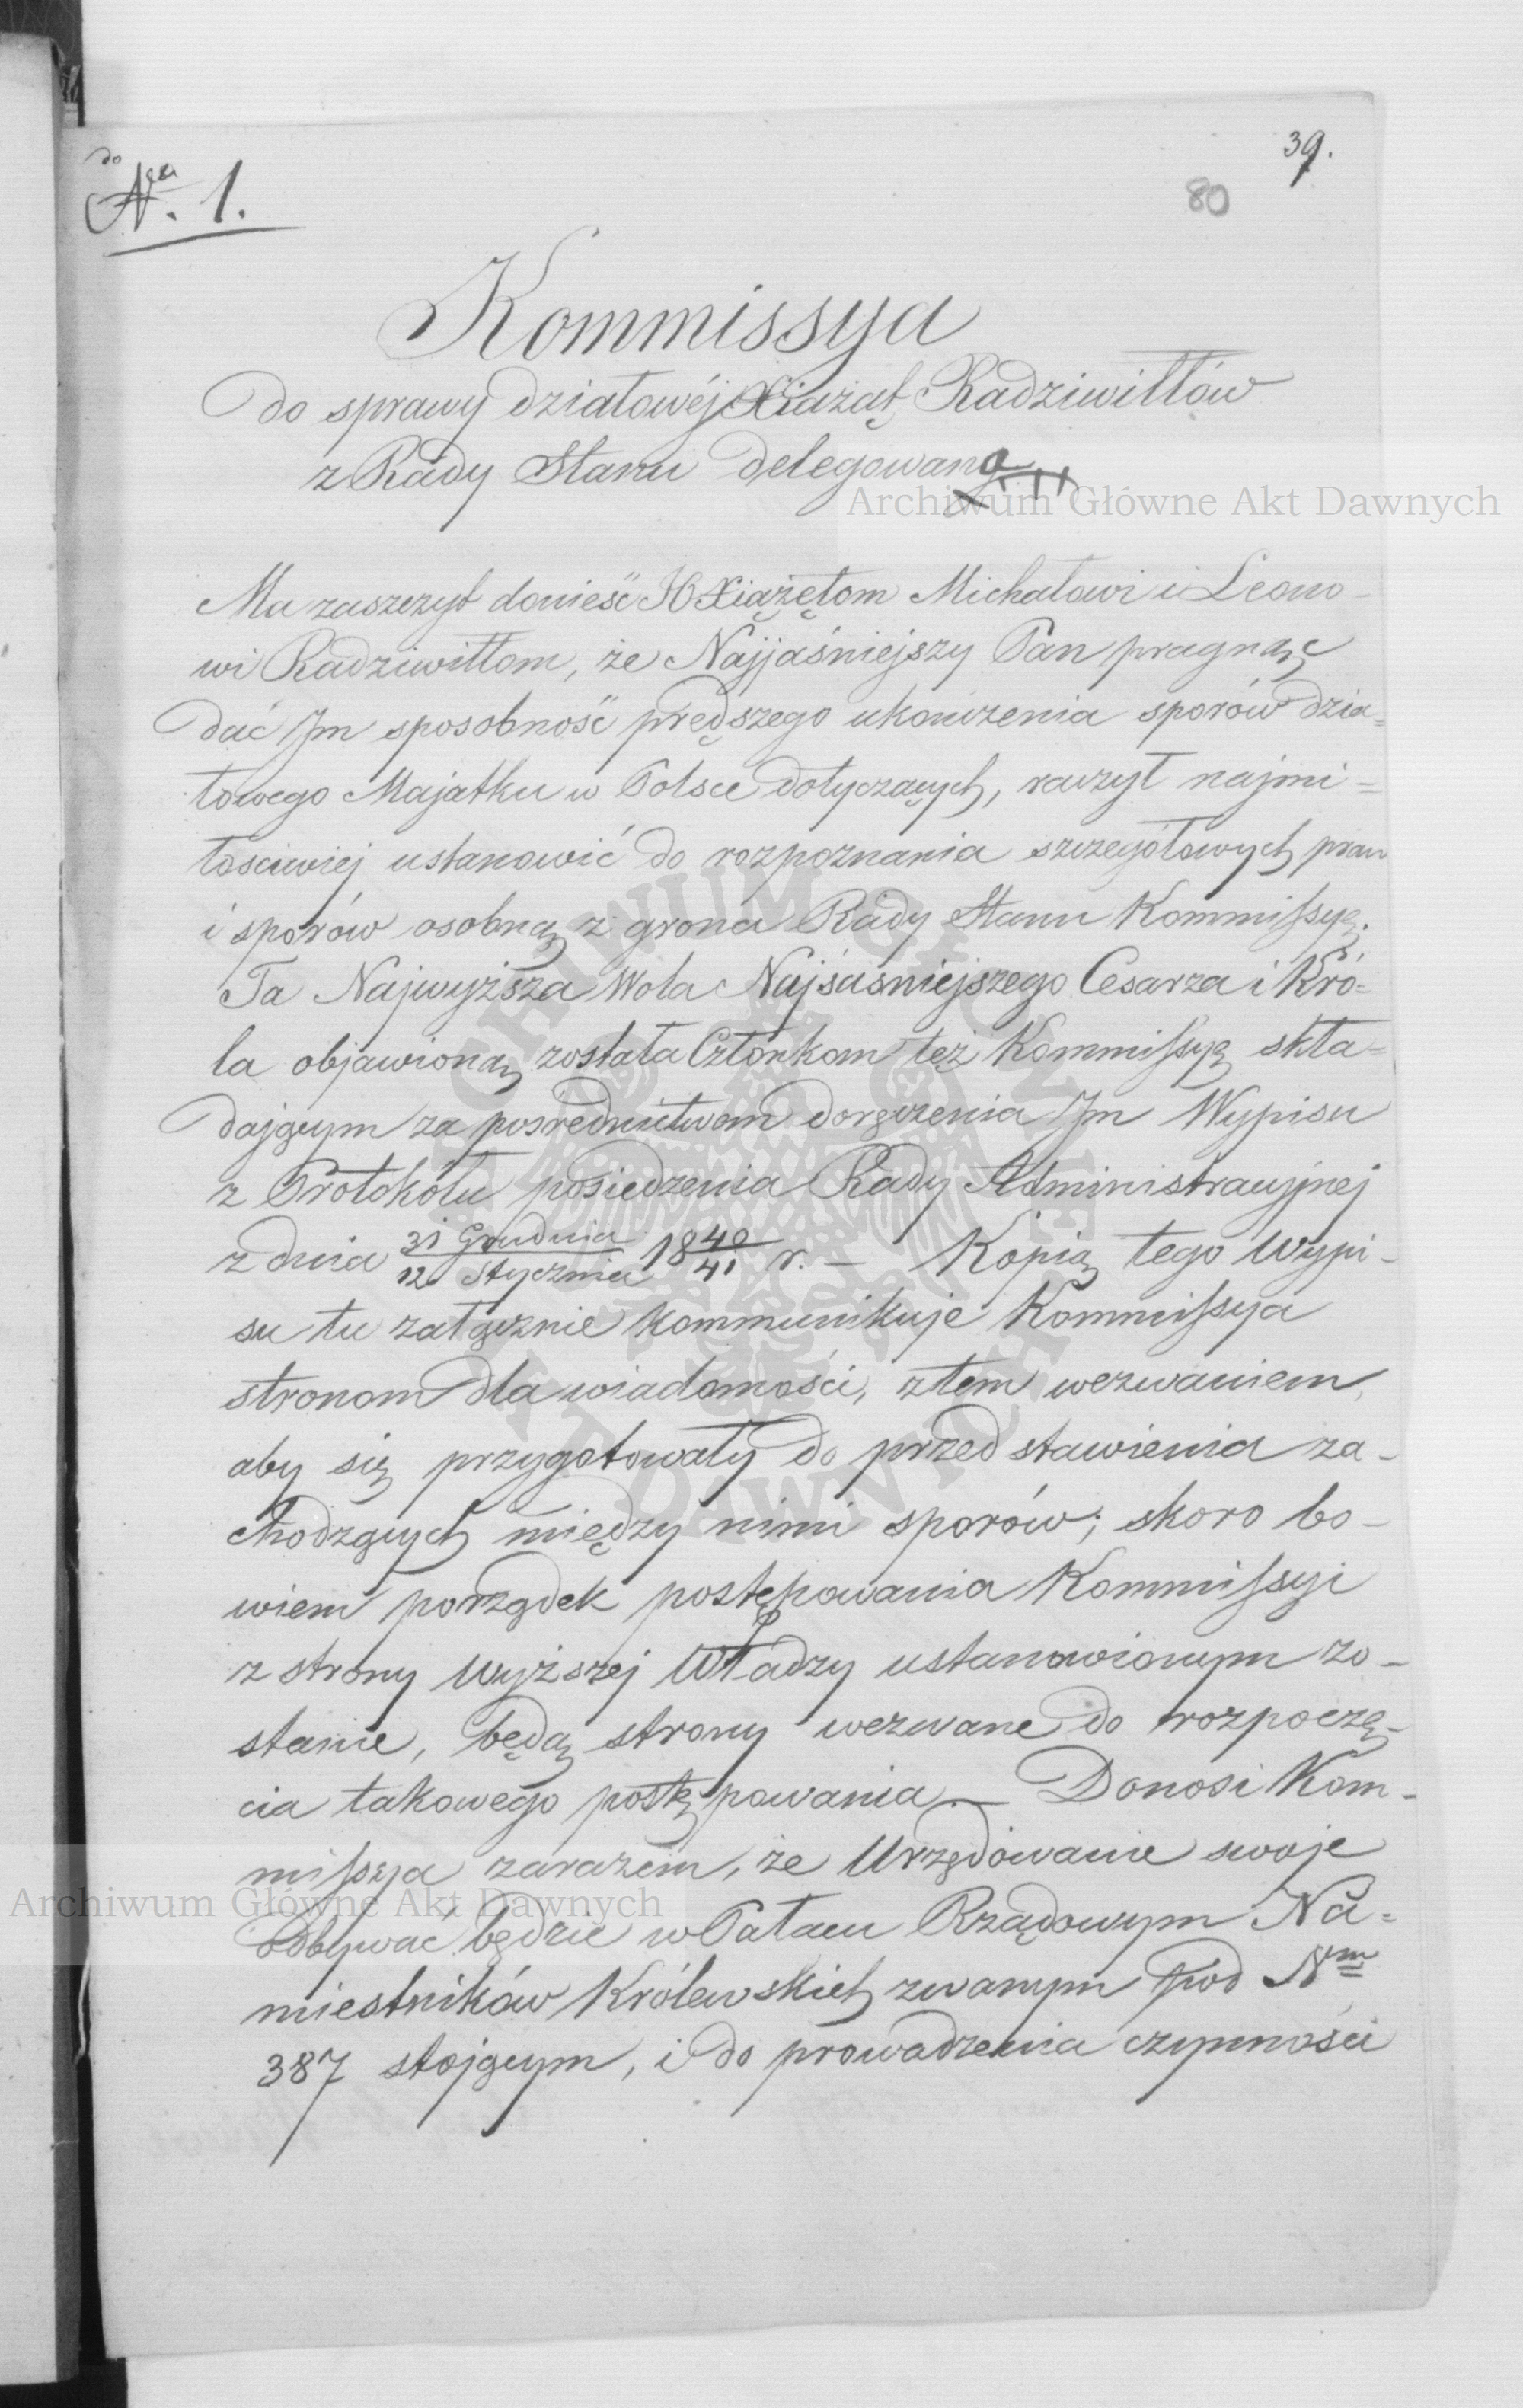 do
Nra. 1.
39.
80
Kommissya
do sprawy działowéj Xiażąt Radziwiłłów
z Rady Stanu delegowana
Archiwum Główne Akt Dawnych
Ma zaszczyt donieść JO Xiążętom Michałowi i Leono-
wi Radziwiłłom, że Najjaśniejszy Pan pragnąc
dać Im sposobność prędszego ukończenia sporów dzia=
łowego Majątku w Polsce dotyczących, raczył najmi=
łościwiej ustanowić do rozpoznania szczegółowych praw
i sporów osobną z grona Rady Stanu Kommissyę.
Ta Najwyższa Wola Najśaśniejszego Cesarza i Kró=
la objawioną została Członkom też Kommissyę skła=
dającym za pośrednictwem doręczenia Im Wypisu
z Protokółu posiedzenia Rady Administracyjnej
z dnia 31 Grudnia / 12 Stycznia 18 40/41 r. — Kopią tego Wypi-
su tu załącznie kommunikuje Kommissya
stronom dla wiadomości, z tem wezwaniem,
aby się przygotowały do przedstawienia za-
chodzących między nimi sporów; skoro bo-
wiem porządek postępowania Kommissyi
z strony Wyższej Władzy ustanowionym zo-
stanie, będą strony wezwane do rozpoczę-
cia takowego postępowania. — Donosi Kom-
missya zarazem, że Urzędowanie swoje
Archiwum Główne Akt Dawnych
odbywać będzie w Pałacu Rządowym Na=
miestników Królewskich zwanym pod Nm
387 stojącym, i do prowadzenia czynności
ARCHIWUM GŁÓWNE AKT DAWNYCH